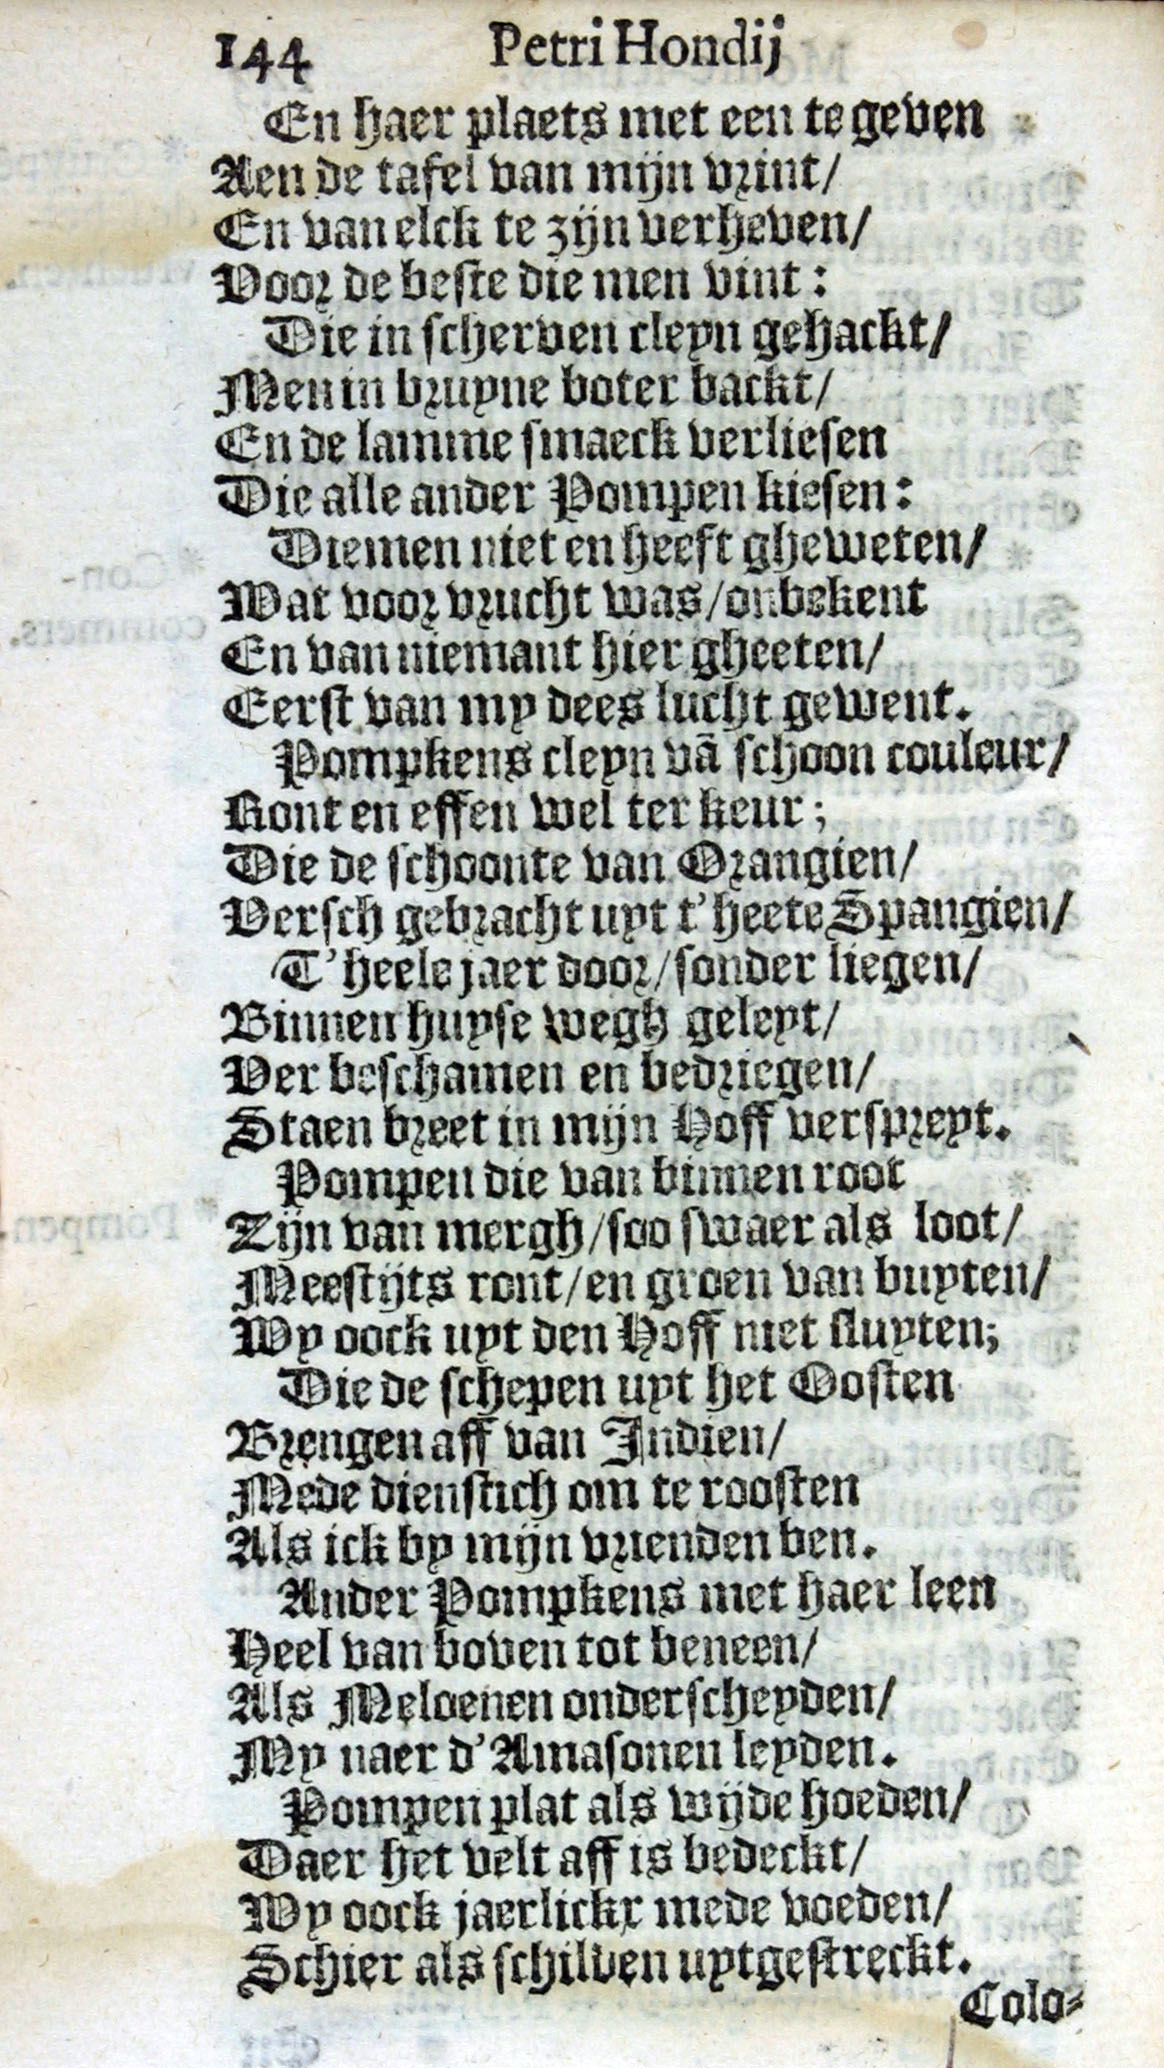 144 Petri Hondij
En haer plaets met een te geven
Aen de tafel van mijn vrint/
En van elck te zijn verheven/
Voor de beste die men vint:
Die in scherven cleyn gehackt/
Men in bruyne boter backt/
En de lamme smaeck verliesen
Die alle ander Pompen kiesen:
Diemen niet en heeft gheweten/
Wat voor vrucht was/onbekent
En van niemant hier gheeten/
Eerst van my dees lucht gewent.
Pompkens cleyn vã schoon couleur/
Ront en effen wel ter keur;
Die de schoonte van Orangien/
Versch gebracht uyt t'heete Spangien/
T'heele jaer door/sonder liegen/
Binnen huyse wegh geleyt/
Ver beschamen en bedriegen/
Staen breet in mijn Hoff verspreyt.
Pompen die van binnen root
Zijn van mergh/soo swaer als loot/
Meestijts ront/en groen van buyten/
Wy oock uyt den Hoff niet sluyten;
Die de schepen uyt het Oosten
Brengen aff van Indien/
Mede dienstich om te roosten
Als ick by mijn vrienden ben.
Ander Pompkens met haer leen
Heel van boven tot beneen/
Als Meloenen onderscheyden/
My naer d'Amasonen leyden.
Pompen plat als wijde hoeden/
Daer het velt aff is bedeckt/
Wy oock jaerlickx mede voeden/
Schier als schilden uytgestreckt.
Colo-